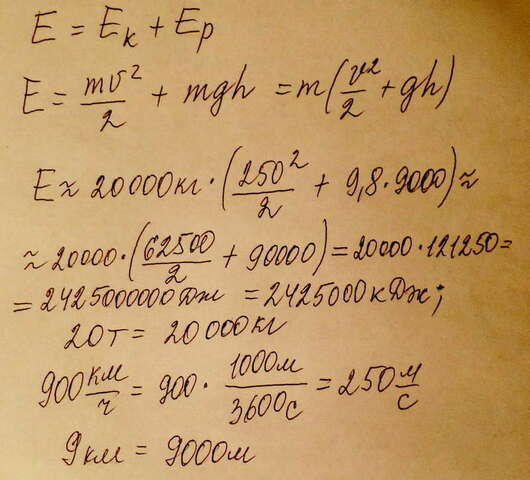 E = Eₖ + Eₚ
E = mv²/2 + mgh = m(v²/2 + gh)
E ≈ 20000кг · (250²/2 + 9,8 · 9000) ≈
≈ 20000 · (62500/2 + 90000) = 20000 · 121250 =
= 2425000000 Дж = 2425000 кДж;
20т = 20000кг
900 км/ч = 900 · 1000м/3600с = 250 м/с
9км = 9000м